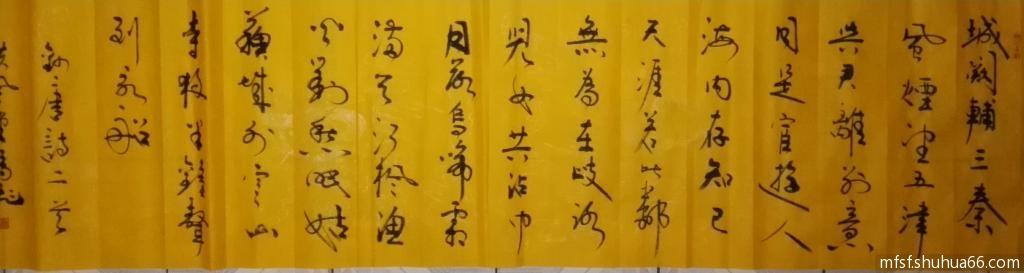 城闕輔三秦
風煙望五津
與君離別意
同是宦遊人
海内存知己
天涯若比鄰
無為在歧路
兒女共沾巾
月落烏啼霜
滿天江楓漁
火對愁眠姑
蘇城外寒山
寺夜半鐘聲
到客船
唐詩二首
mfsf.shuhua66.com